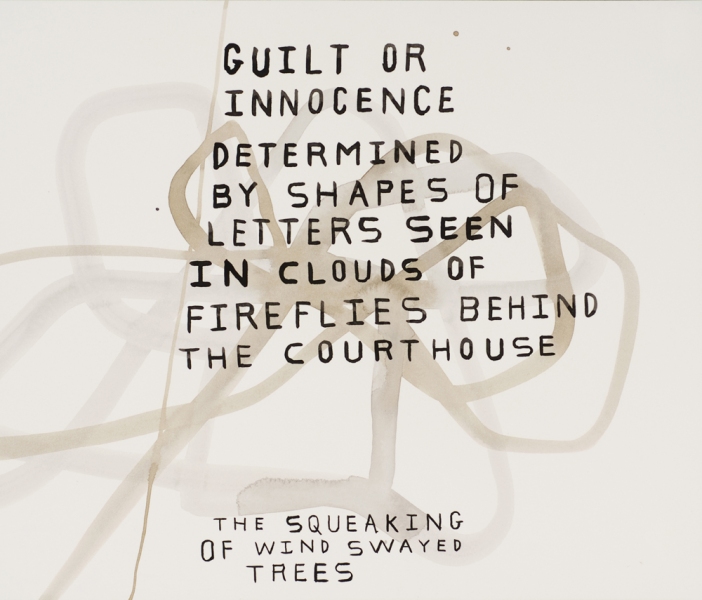 GUILT OR
INNOCENCE
DETERMINED
BY SHAPES OF
LETTERS SEEN
IN CLOUDS OF
FIREFLIES BEHIND
THE COURTHOUSE
THE SQUEAKING
OF WIND SWAYED
TREES